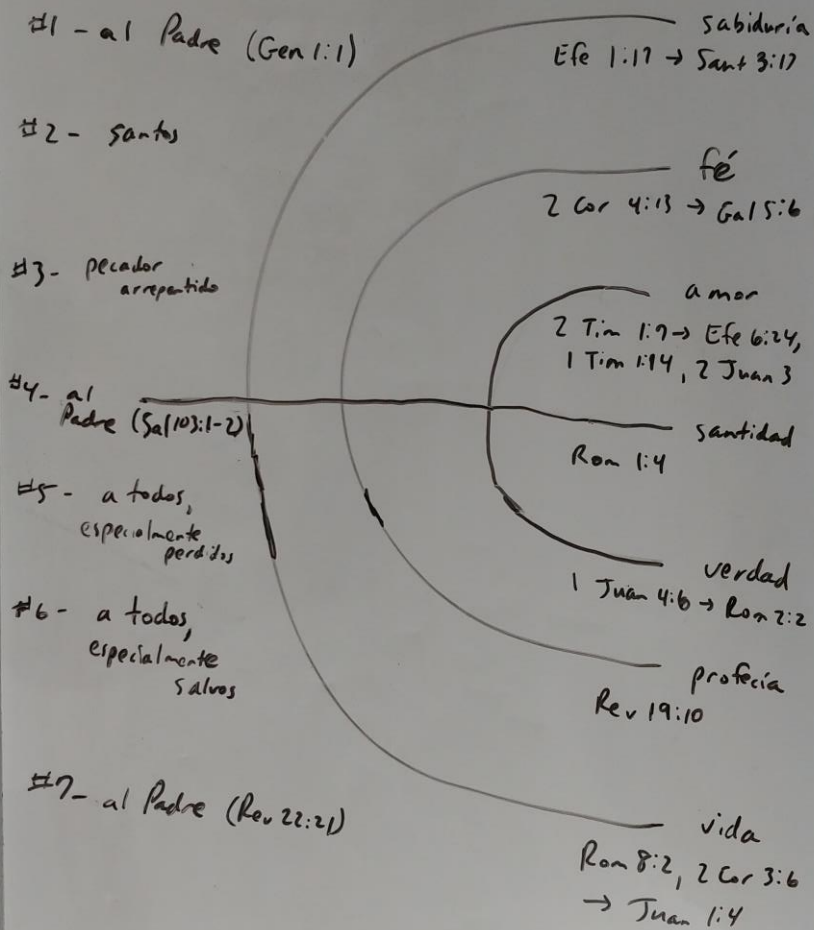 #1 - al Padre (Gen 1:1)
#2 - santos
#3 - pecador
arrepentido
#4 - al
Padre (Sal 103:1-2)
#5 - a todos,
especialmente
perdidos
#6 - a todos,
especialmente
salvos
#7 - al Padre (Rev 22:21)
sabiduría
Efe 1:17 → Sant 3:17
fé
2 Cor 4:13 → Gal 5:6
amor
2 Tim 1:7 → Efe 6:24,
1 Tim 1:14, 2 Juan 3
santidad
Rom 1:4
verdad
1 Juan 4:6 → Rom 2:2
profecía
Rev 19:10
vida
Rom 8:2, 2 Cor 3:6
→ Juan 1:4